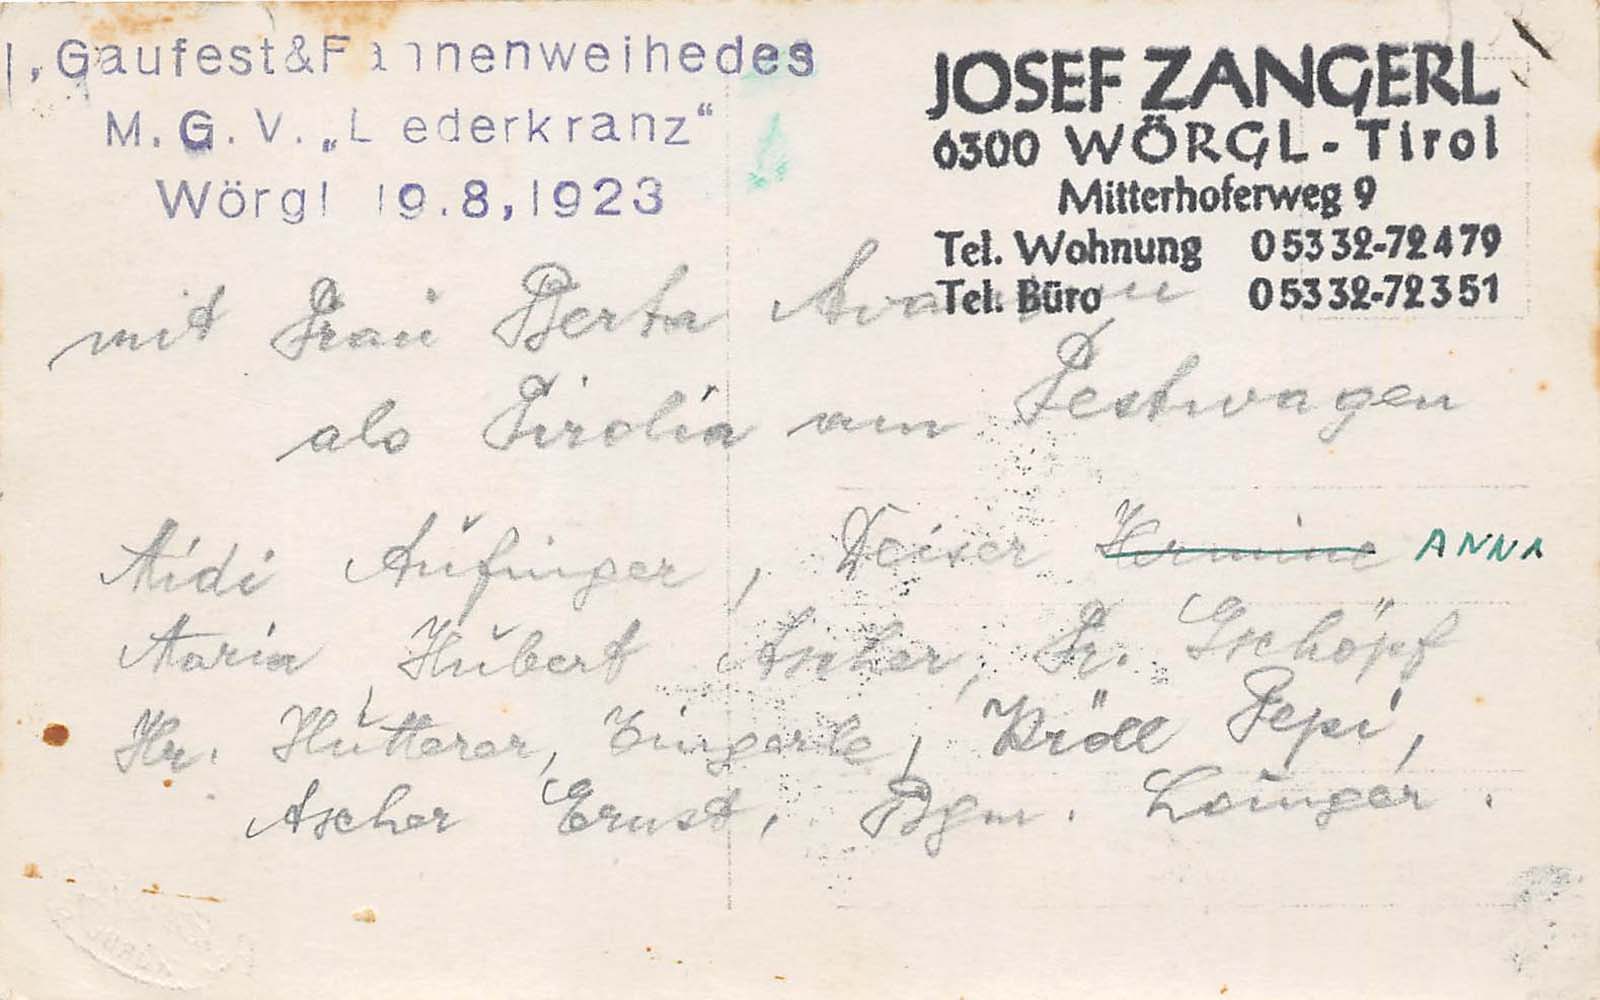 1. Gaufest & Fahnenweihe des
M. G. V. „Liederkranz“
Wörgl 19.8,1923
JOSEF ZANGERL
6300 WÖRGL - Tirol
Mitterhoferweg 9
Tel. Wohnung 05332-72479
Tel. Büro 05332-72351
mit Frau Berta
als Tirolia am Festwagen
Aufinger, Deiser Hermine ANNA
Maria, Hubert Ascher, Fr. Gschöpf
Hr. Hütterer, Zingerle, Kröll Pepi,
Ascher Ernst, Bgm. Loinger.